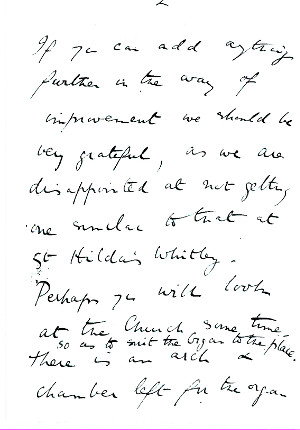 2
If you can add anything
further in the way of
improvement we should be
very grateful, as we are
disappointed at not getting
one similar to that at
St Hilda's Whitley.
Perhaps you will look
at the Church some time,
so as to suit the Organ to the place.
there is an arch &
chamber left for the organ